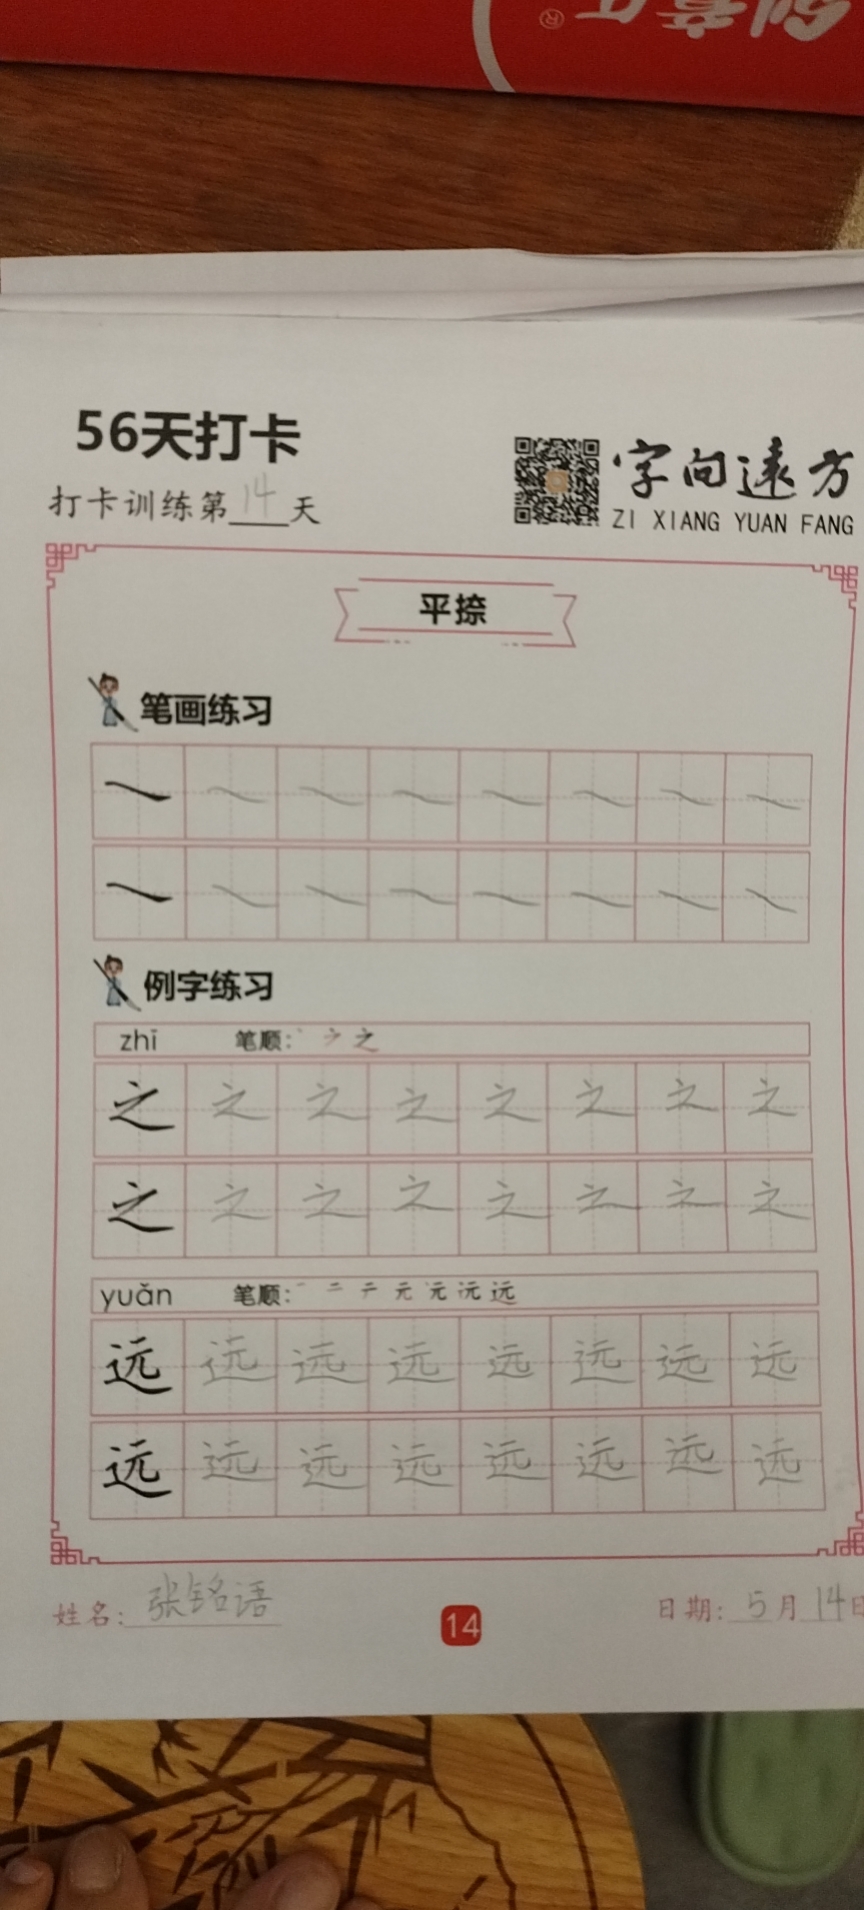 创意江®
56天打卡
打卡训练第14天
字向遠方
ZI XIANG YUAN FANG
平捺
笔画练习
例字练习
zhī 笔顺: 丶 ㇇ 之
之 之 之 之 之 之 之 之
之 之 之 之 之 之 之 之
yuǎn 笔顺: 一 二 テ 元 元 远 远
远 远 远 远 远 远 远 远
远 远 远 远 远 远 远 远
姓名: 张铭语
14
日期: 5月14日